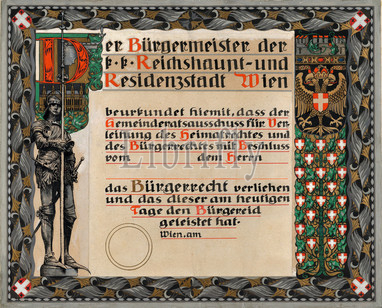 Der Bürgermeister der
k·k·Reichshaupt-und
Residenzstadt Wien
beurkundet hiemit, dass der
Gemeinderatsausschuss für Ver-
leihung des Heimatrechtes und
des Bürgerrechtes mit Beschluss
vom dem Herrn
das Bürgerrecht verliehen
und das dieser am heutigen
Tage den Bürgereid
geleistet hat.
Wien, am